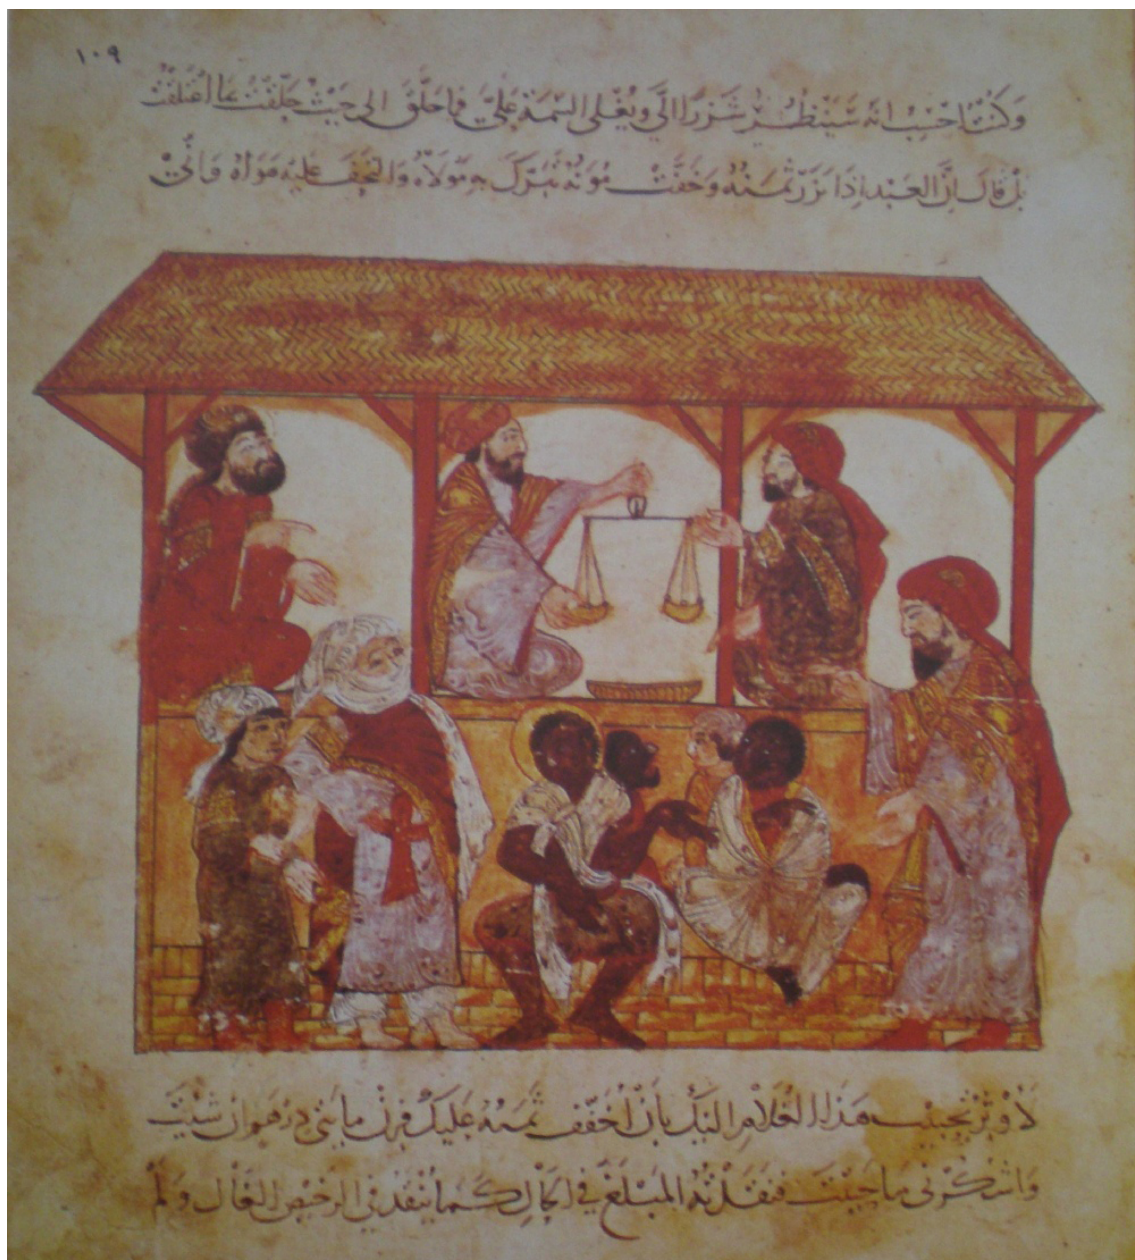 ١٠٩
وَكُنْتُ احْسِبُ انه سَيَنْظُرُ شَزرًا الَيَّ ويُغْلى السِّمَةَ عَلىَّ فما حَلَّقَ الى حَيْثُ حَلَّقْتُ اعْتَلَقْتُ
بل قال انَّ العَبْد اذَا نَزَرَ ثَمَنُهُ وَخَفَّتْ مُوَنُهُ تَبَرَّكَ بهِ مَوْلَاهُ وَالتَحَفَ عليْه هَوَاهُ وَانّىْ
لَأُوثِرُ تَحْبِيْبَ هَذَا الغُلَامِ الَيْكَ بِأنْ أُخَفِّفَ ثَمَنَهُ عَلَيْكَ فَزِنْ مِايتَىْ دِرْهَمٍ انْ شِئْتَ
وَاشْكُرْنِى مَا حَيِيْتَ فنَقَدْتُهُ المَبْلَغَ فِي الحَالِ كَمَا يُنْقَدُ فِي الرَّخِيْصِ الغَالِ وَلَمْ